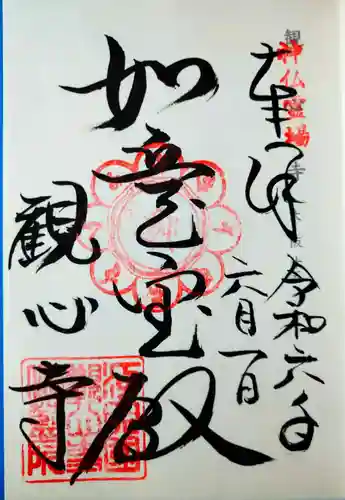 奉拝
神仏霊場
令和六年
六月一日
如意宝殿
観心寺